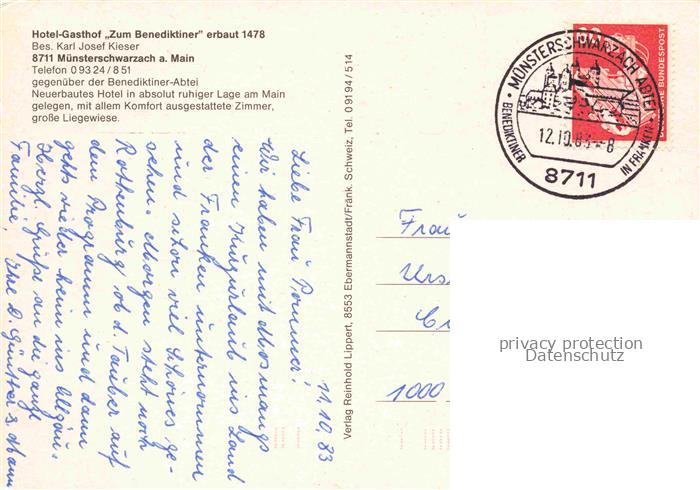 Hotel-Gasthof „Zum Benediktiner" erbaut 1478
Bes. Karl Josef Kieser
8711 Münsterschwarzach a. Main
Telefon 0 93 24 / 8 51
gegenüber der Benediktiner-Abtei
Neuerbautes Hotel in absolut ruhiger Lage am Main
gelegen, mit allem Komfort ausgestattete Zimmer,
große Liegewiese.
11.10.83
Liebe Frau
Wir haben mit
einen Kurzurlaub ins Land
der Franken unternommen
und schon viel Schönes ge-
sehen. Morgen steht noch
Rothenburg ob d. Tauber auf
dem Programm und dann
gehts wieder heim ins Allgäu.
Herzl. Grüße an die ganze
Familie, Ihre D. Günther u. Mann
Verlag Reinhold Lippert, 8553 Ebermannstadt/Fränk. Schweiz, Tel. 0 91 94 / 5 14
DEUTSCHE BUNDESPOST
MÜNSTERSCHWARZACH ABTEI
BENEDIKTINER
IN FRANKEN
12.10.83 - 8
8711
Frau
Urs
1000
privacy protection
Datenschutz